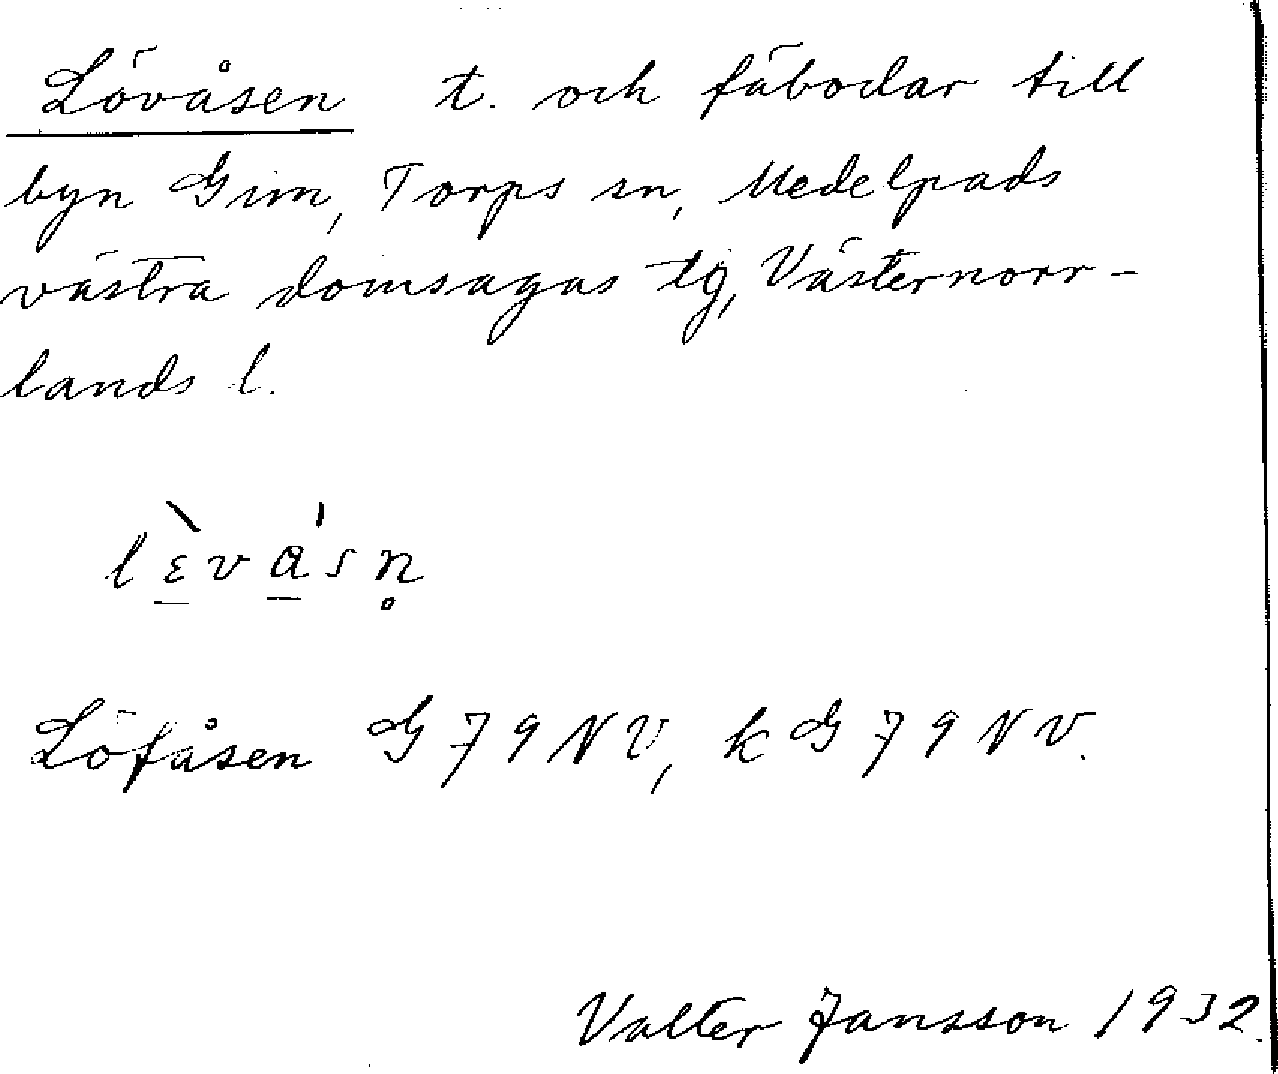 Lövåsen t. och fäbodar till
byn Gim, Torps sn, Medelpads
västra domsagas tg, Västernorr-
lands l.
lὲvás̀n̥
Löfåsen G 79 NV, k G 79 NV.
Valter Jansson 1932